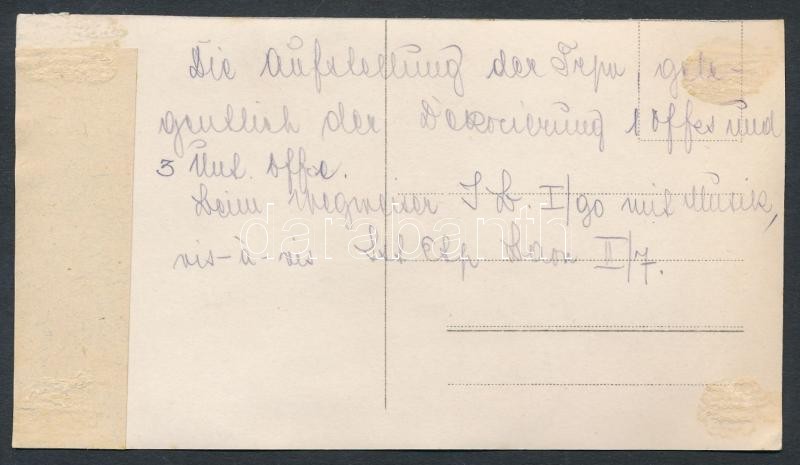 Die Aufstellung der Trpn, gele-
gentlich der Dekorierung 1 Offes und
3 Unt. Offe.
beim Wegweiser I/90 mit Musik,
vis-à-vis II/7.
darabanth